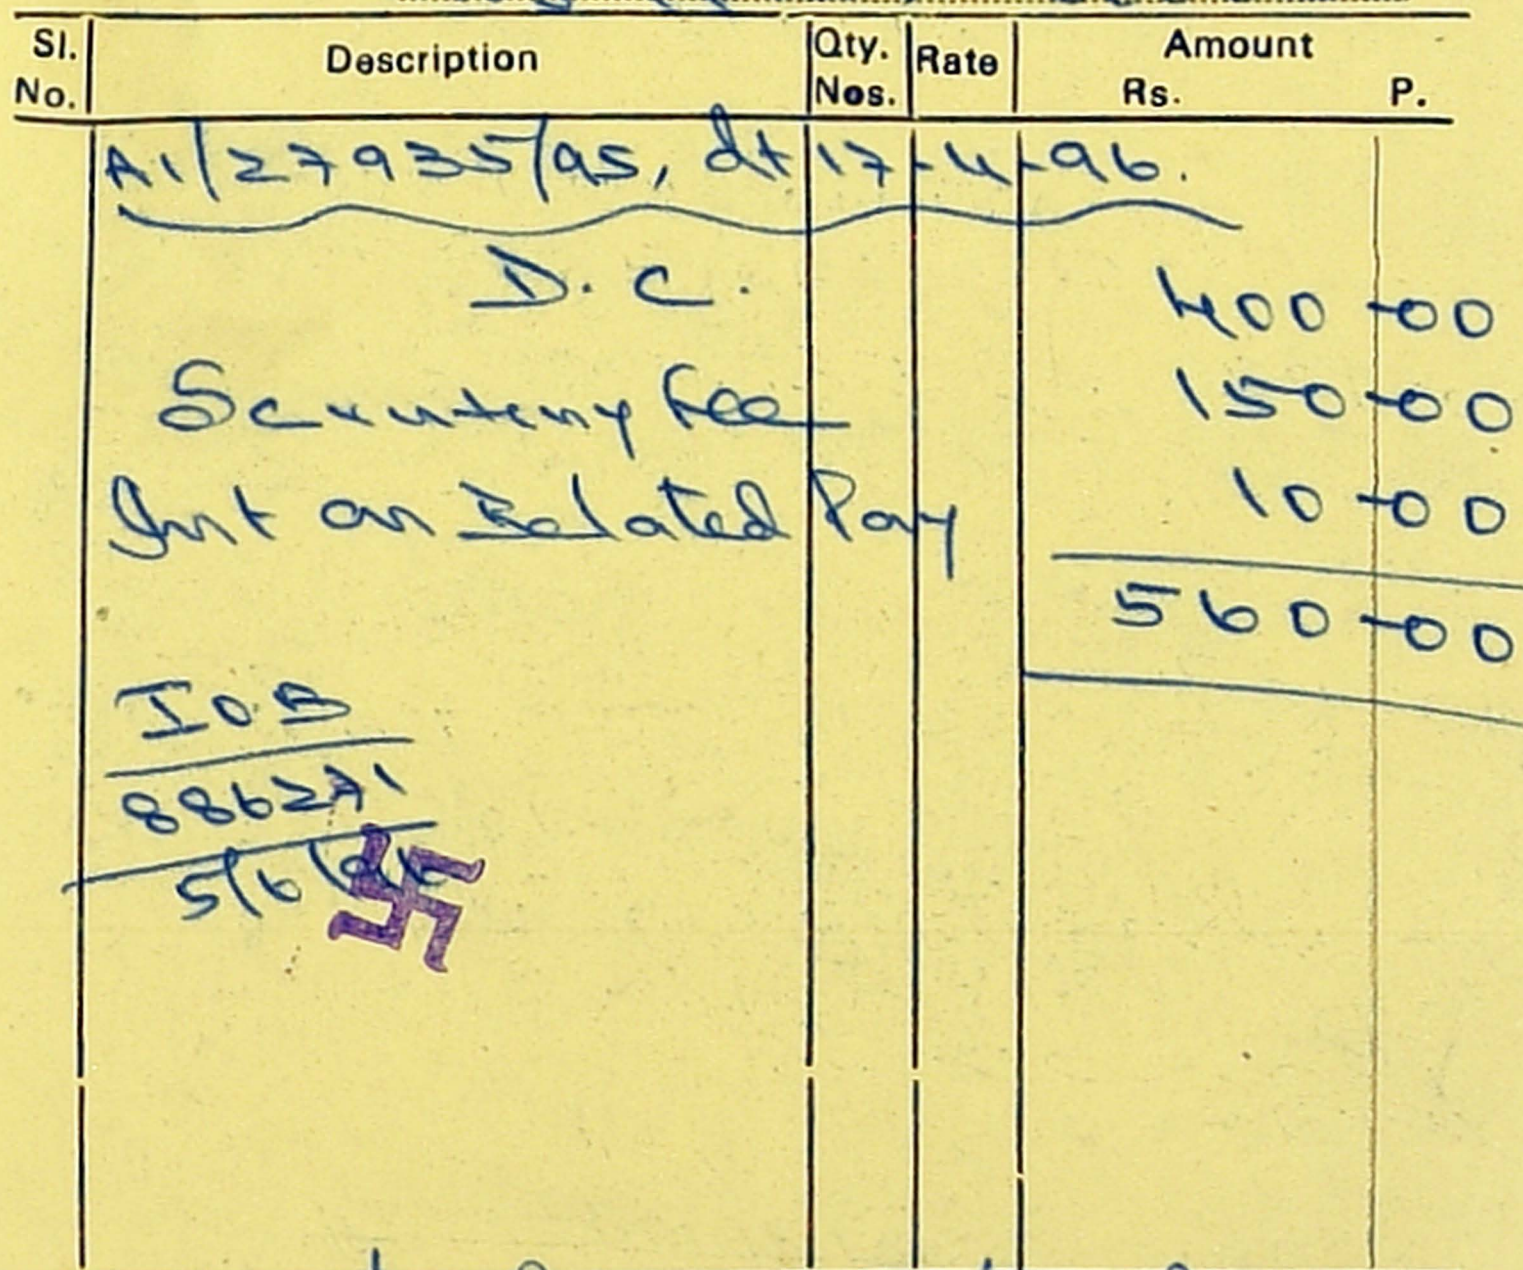 Sl. No. Description Qty. Nos. Rate Amount Rs. P.
A1/27935/95, dt 17-4-96.
D.C. 400-00
Scrutiny fee 150-00
Int on Belated Pay 10-00
560-00
I.O.B
886271
5/6/96